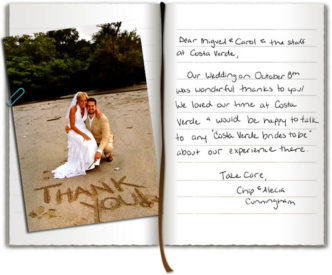 THANK
YOU!
Dear Miguel & Carol & the staff
at Costa Verde,
Our Wedding on October 8th
was wonderful thanks to you!
We loved our time at Costa
Verde & would be happy to talk
to any "Costa Verde brides to be"
about our experience there.
Take Care,
Chip & Alecia
Cunningham